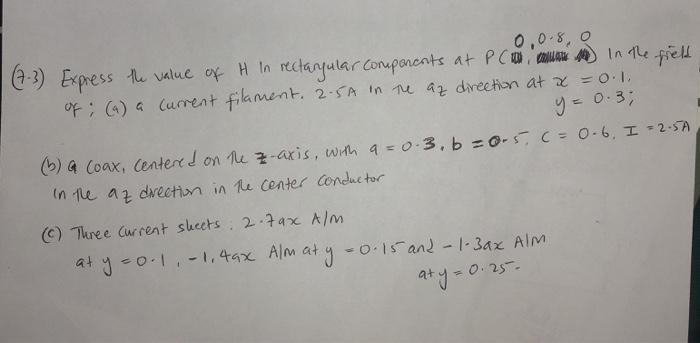 0, 0.8, 0
(7.3) Express the value of H In rectangular components at P( ) In the field
of; (a) a Current filament. 2.5A in the az direction at x = 0.1,
y = 0.3;
(b) a Coax, Centered on the z-axis, with a = 0.3, b = 0.5, C = 0.6, I = 2.5A
In the az direction in the center conductor
(c) Three Current sheets: 2.7ax A/m
at y = 0.1, -1.4ax A/m at y = 0.15 and -1.3ax A/m
at y = 0.25.